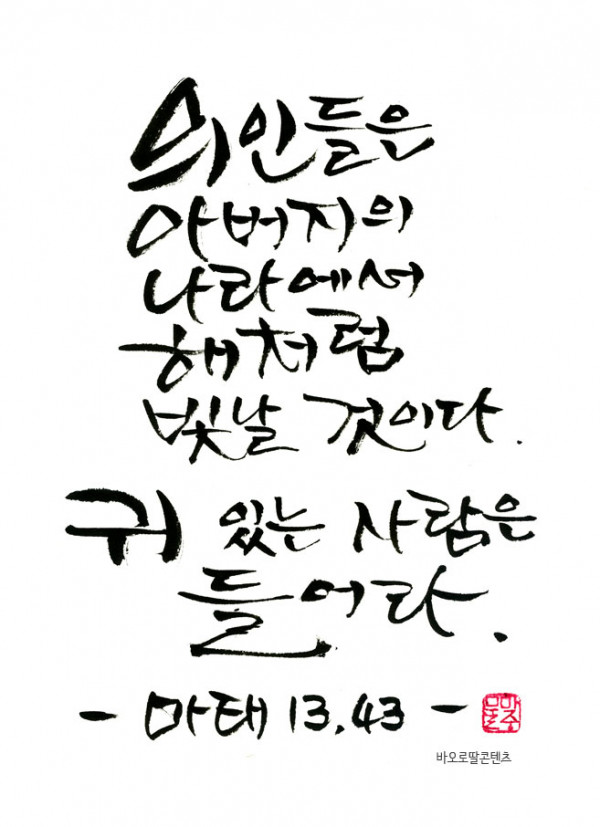 의인들은
아버지의
나라에서
해처럼
빛날 것이다.
귀 있는 사람은
들어라.
- 마태 13,43 -
바오로딸콘텐츠